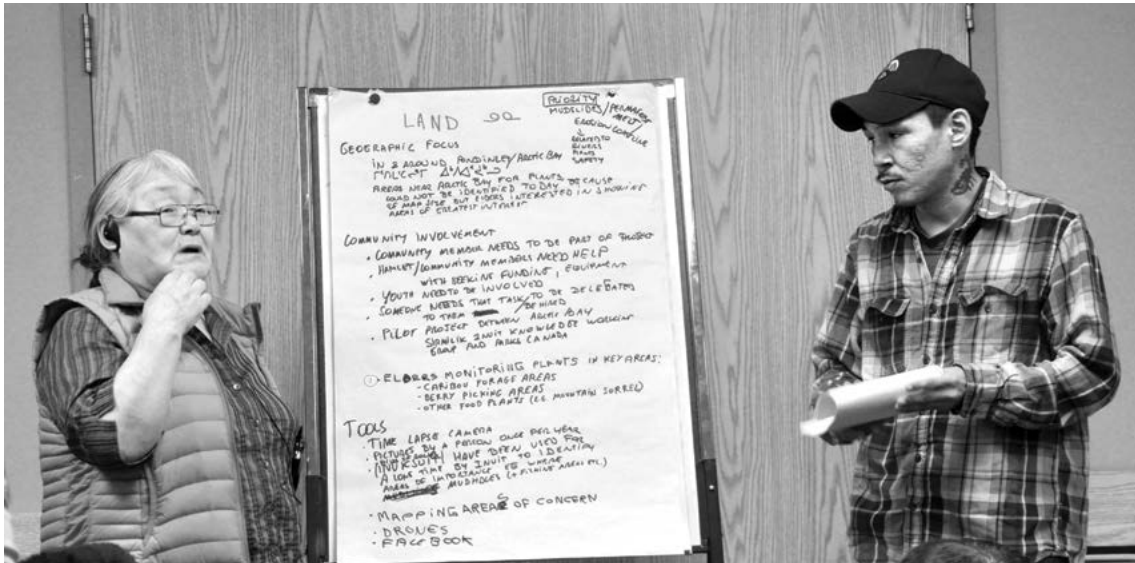 LAND ᓄᓇ
PRIORITY
MUDSLIDES/PERMAFROST
MELT/
EROSION/COASTLINE
↓
RELATED TO
BERRIES
PLANTS
SAFETY
GEOGRAPHIC FOCUS
IN & AROUND POND INLET/ARCTIC BAY
AREAS NEAR ARCTIC BAY FOR PLANTS
COULD NOT BE IDENTIFIED TODAY BECAUSE
OF MAP SIZE BUT ELDERS INTERESTED IN SHOWING
AREAS OF GREATEST INTEREST
COMMUNITY INVOLVEMENT
• COMMUNITY MEMBER NEEDS TO BE PART OF PROJECT
• HAMLET/COMMUNITY MEMBERS NEED HELP
WITH SEEKING FUNDING, EQUIPMENT
• YOUTH NEED TO BE INVOLVED
• SOMEONE NEEDS THAT TASK TO BE DELEGATED
TO THEM / BE HIRED
• PILOT PROJECT BETWEEN ARCTIC BAY
SIRMILIK INUIT KNOWLEDGE WORKING
GROUP AND PARKS CANADA
• ELDERS MONITORING PLANTS IN KEY AREAS:
- CARIBOU FORAGE AREAS
- BERRY PICKING AREAS
- OTHER FOOD PLANTS (I.E. MOUNTAIN SORREL)
TOOLS
• TIME LAPSE CAMERA
• PICTURES BY A PERSON ONCE PER YEAR
• INUKSUIT HAVE BEEN USED FOR
A LONG TIME BY INUIT TO IDENTIFY
AREAS OF IMPORTANCE EG WHERE
MUDHOLES (+ FISHING AREAS ETC.)
• MAPPING AREAS OF CONCERN
• DRONES
• FACEBOOK